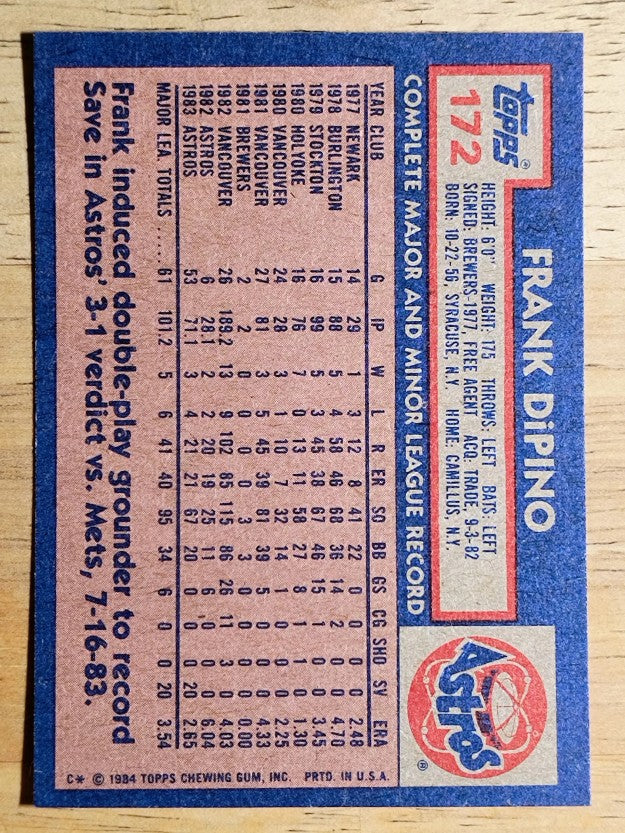 topps®
172
FRANK DiPINO
HEIGHT: 6'0" WEIGHT: 175 THROWS: LEFT BATS: LEFT
SIGNED: BREWERS-1977, FREE AGENT ACQ. TRADE, 9-3-82
BORN: 10-22-56, SYRACUSE, N.Y. HOME: CAMILLUS, N.Y.
Astros ®
COMPLETE MAJOR AND MINOR LEAGUE RECORD
YEAR CLUB G IP W L R ER SO BB GS CG SHO SV ERA
1977 NEWARK 14 29 1 3 12 8 41 22 0 0 0 0 2.48
1978 BURLINGTON 15 88 5 4 58 46 81 36 14 2 0 0 4.70
1979 STOCKTON 16 99 5 3 45 38 67 46 15 1 0 0 3.45
1980 HOLYOKE 16 76 7 0 13 11 58 27 8 1 1 0 1.30
1980 VANCOUVER 24 28 3 1 10 7 32 14 0 0 0 0 2.25
1981 VANCOUVER 27 81 3 5 45 39 81 39 5 0 0 4.33
1981 BREWERS 2 2 0 0 0 0 3 3 0 0 0 0 0.00
1982 VANCOUVER 26 189.2 13 9 102 85 115 86 26 11 3 0 4.03
1982 ASTROS 6 28.1 2 2 20 19 25 11 6 0 0 0 6.04
1983 ASTROS 53 71.1 3 4 21 21 67 20 0 0 0 20 2.65
MAJOR LEA TOTALS ..... 61 101.2 5 6 41 40 95 34 6 0 0 20 3.54
Frank induced double-play grounder to record
Save in Astros' 3-1 verdict vs. Mets, 7-16-83.
C* © 1984 TOPPS CHEWING GUM, INC. PRTD. IN U.S.A.